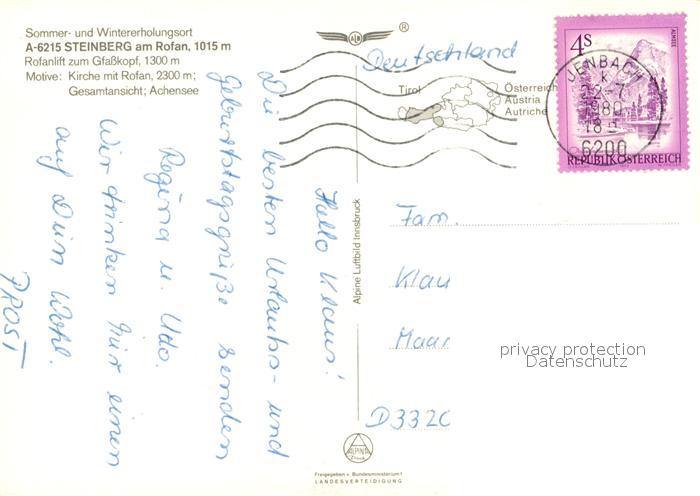 Sommer- und Wintererholungsort
A-6215 STEINBERG am Rofan, 1015 m
Rofanlift zum Gfaßkopf, 1300 m
Motive: Kirche mit Rofan, 2300 m;
Gesamtansicht; Achensee
ALB
®
Deutschland
Tirol
Österreich
Austria
Autriche
4S
ALMSEE
REPUBLIK ÖSTERREICH
JENBACH
k
22-7
1980-
18
6200
Hallo Klaus!
Die besten Urlaubs- und
Geburtstagsgrüße senden
Regina u. Udo.
Wir trinken hier einen
auf Dein Wohl.
PROST
Alpine Luftbild Innsbruck
Fam.
Klau
Maar
D3320
privacy protection
Datenschutz
ALPINA
Freigegeben v. Bundesministerium f.
LANDESVERTEIDIGUNG